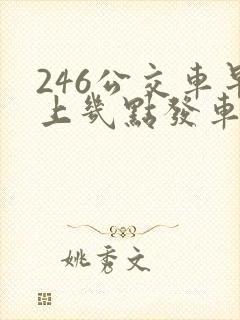 246公交車早
上幾點發車
姚秀文